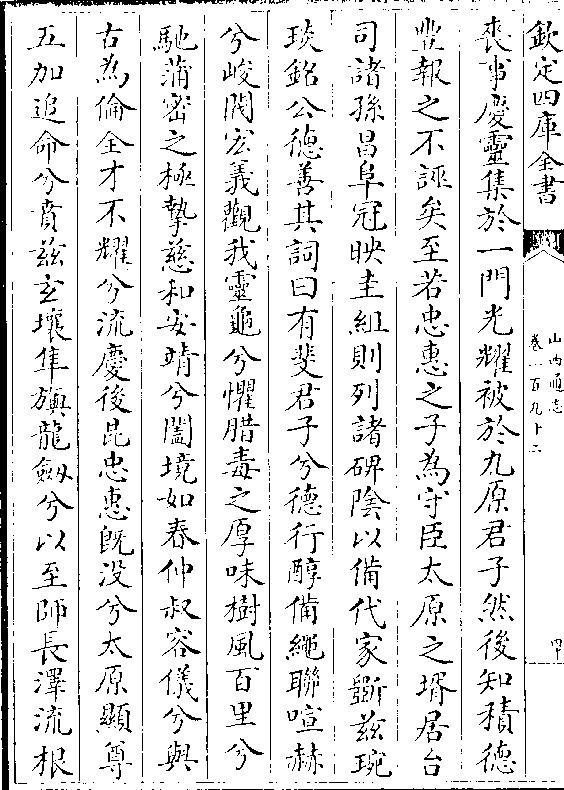 欽定四庫全書
山西通志
卷一百九十二
四十
喪事慶靈集於一門光耀被於九原君子然後知積德
豐報之不誣矣至若忠惠之子為守臣太原之壻居台
司諸孫昌阜冠映圭組則列諸碑陰以備代家斲兹琬
琰銘公德善其詞曰有斐君子兮德行醇備繩聯喧赫
兮峻閥宏義觀我靈龜兮懼腊毒之厚味樹風百里兮
馳蒲密之極摯慈和安靖兮闔境如春仲叔容儀兮與
古為倫全才不耀兮流慶後昆忠惠既没兮太原顯尊
五加追命兮賁兹玄壤隼旟龍劒兮以至師長澤流根